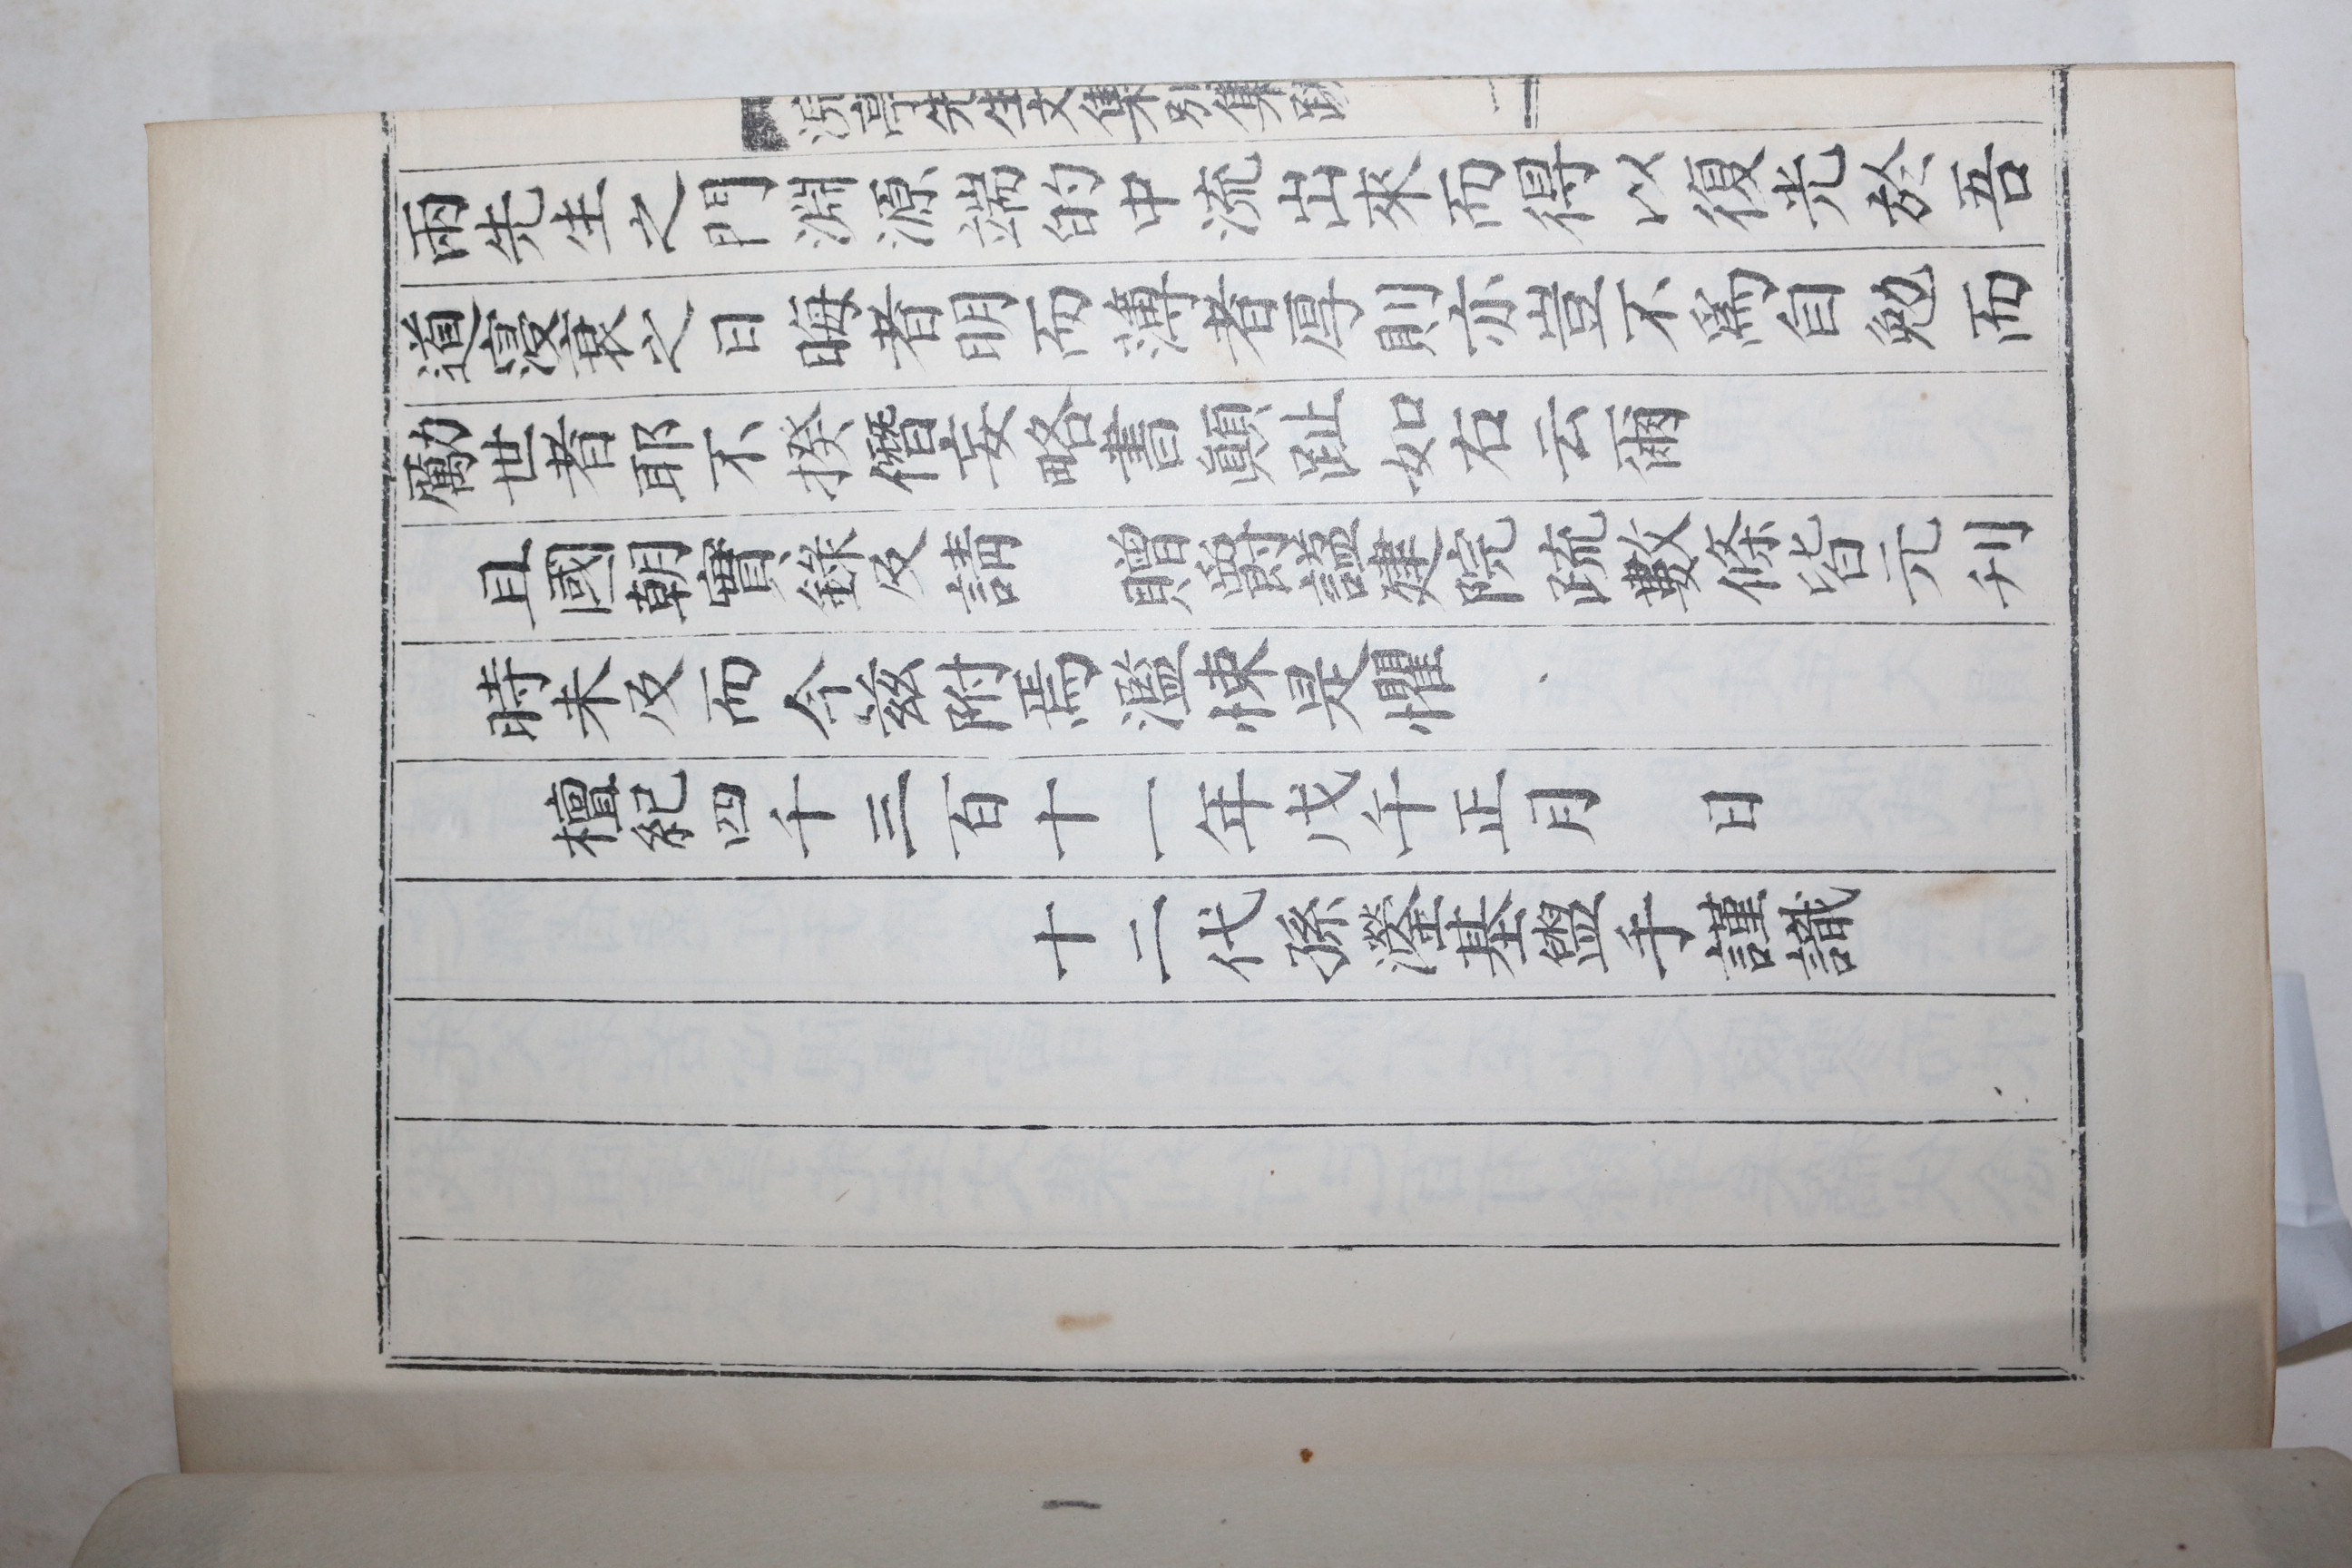 亭先生文集別集跋
兩先生之門淵源端的中流出來而得以復光於吾
道寖衰之日晦者明而薄者厚則亦豈不爲自勉而
勵世者耶不揆僭妄略書顚趾如右云爾
且國朝實錄及請　贈爵諡建院疏數條皆元刊
時未及而今玆附焉濫悚是懼
檀紀四千三百十一年戊午正月　日
十二代孫瀅基盥手謹識